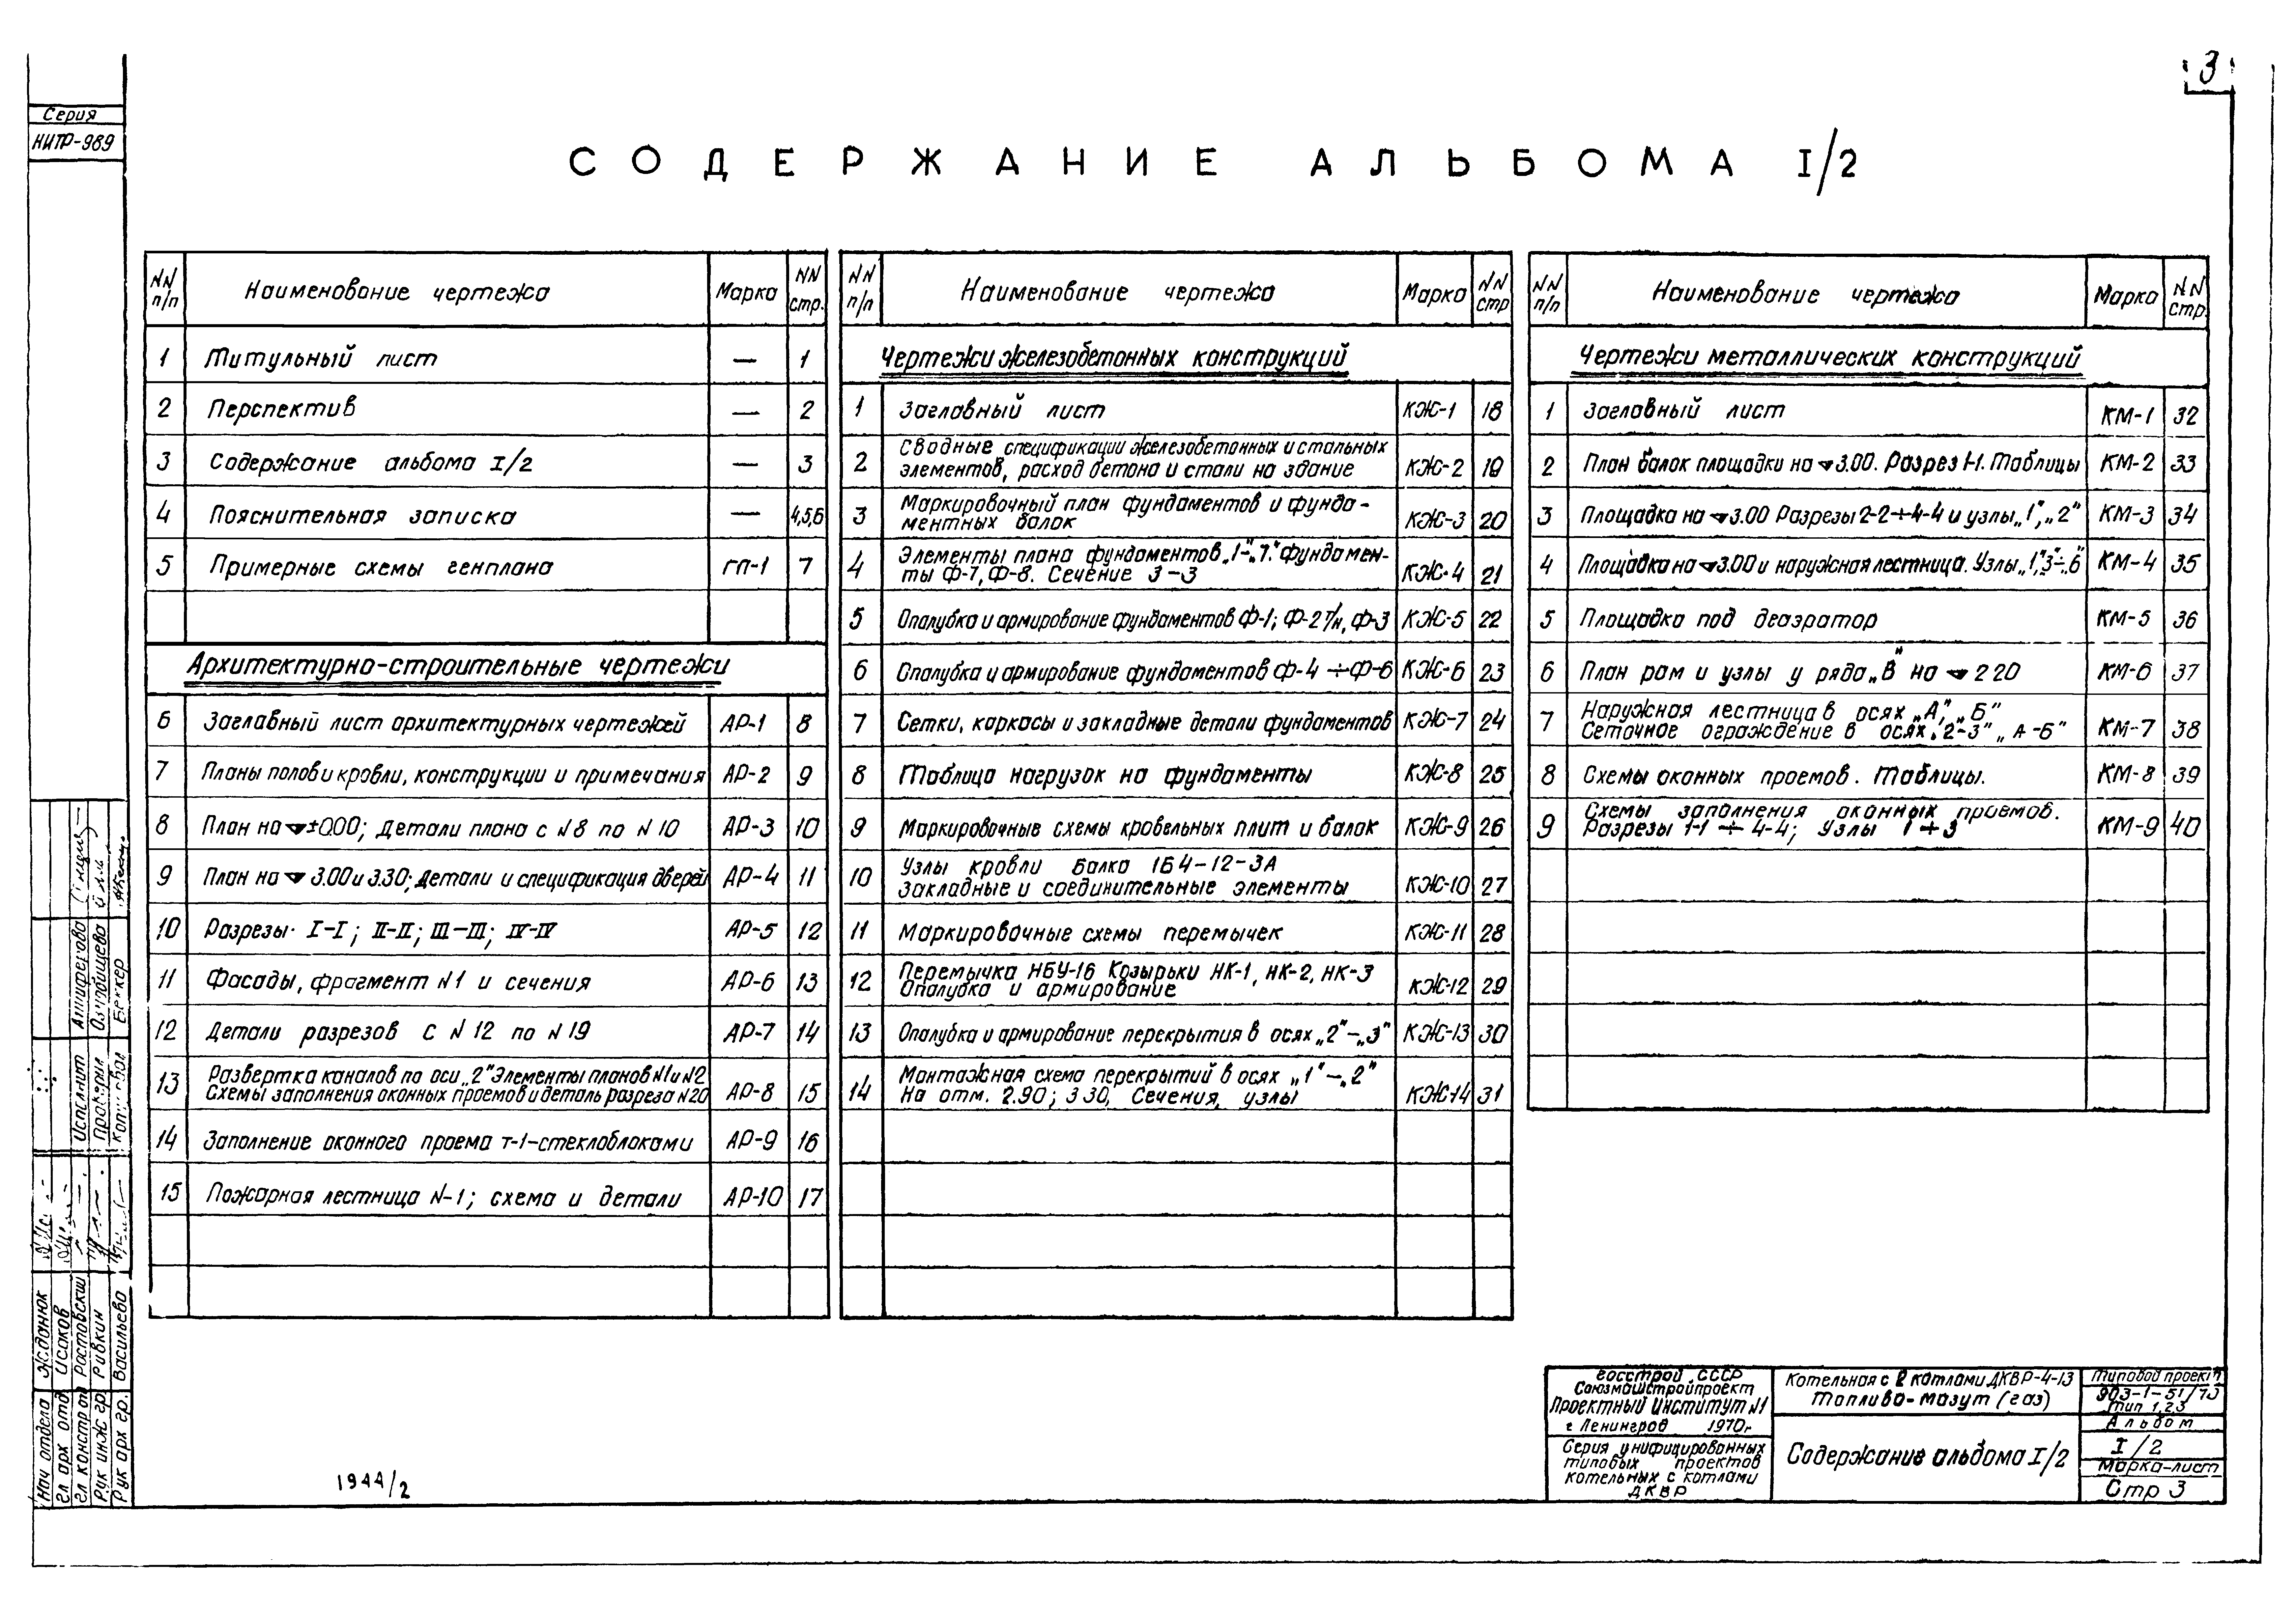 3
Серия
НИТР-989
СОДЕРЖАНИЕ АЛЬБОМА I/2
NN п/п Наименование чертежа Марка NN стр.
1 Титульный лист — 1
2 Перспектив — 2
3 Содержание альбома I/2 — 3
4 Пояснительная записка — 4,5,6
5 Примерные схемы генплана ГП-1 7
Архитектурно-строительные чертежи
6 Заглавный лист архитектурных чертежей АР-1 8
7 Планы полов и кровли, конструкции и примечания АР-2 9
8 План на ±0.00; детали плана с N8 по N10 АР-3 10
9 План на 3.00 и 3.30; детали и спецификация дверей АР-4 11
10 Разрезы I-I; II-II; III-III; IV-IV АР-5 12
11 Фасады, фрагмент N1 и сечения АР-6 13
12 Детали разрезов с N12 по N19 АР-7 14
13 Развертка каналов по оси „2" Элементы планов N1 и N2
Схемы заполнения оконных проемов и деталь разреза N20 АР-8 15
14 Заполнение оконного проема т-1-стеклоблоками АР-9 16
15 Пожарная лестница N-1; схема и детали АР-10 17
NN п/п Наименование чертежа Марка NN стр
Чертежи железобетонных конструкций
1 Заглавный лист КЖ-1 18
2 Сводные спецификации железобетонных и стальных
элементов, расход бетона и стали на здание КЖ-2 19
3 Маркировочный план фундаментов и фунда-
ментных балок КЖ-3 20
4 Элементы плана фундаментов „1"-„7". Фундамен-
ты Ф-7, Ф-8. Сечение 3-3 КЖ-4 21
5 Опалубка и армирование фундаментов Ф-1; Ф-2 т/н, Ф-3 КЖ-5 22
6 Опалубка и армирование фундаментов Ф-4 ÷ Ф-6 КЖ-6 23
7 Сетки, каркасы и закладные детали фундаментов КЖ-7 24
8 Таблица нагрузок на фундаменты КЖ-8 25
9 Маркировочные схемы кровельных плит и балок КЖ-9 26
10 Узлы кровли Балка 1Б4-12-3А
Закладные и соединительные элементы КЖ-10 27
11 Маркировочные схемы перемычек КЖ-11 28
12 Перемычка НБУ-16 Козырьки НК-1, НК-2, НК-3
Опалубка и армирование КЖ-12 29
13 Опалубка и армирование перекрытия в осях „2"-„3" КЖ-13 30
14 Монтажная схема перекрытий в осях „1"-„2"
На отм. 2.90; 3 30, Сечения, узлы КЖ-14 31
NN п/п Наименование чертежа Марка NN стр.
Чертежи металлических конструкций
1 Заглавный лист КМ-1 32
2 План балок площадки на 3.00. Разрез 1-1. Таблицы КМ-2 33
3 Площадка на 3.00 Разрезы 2-2÷4-4 и узлы „1", „2" КМ-3 34
4 Площадка на 3.00 и наружная лестница. Узлы „1", „3"÷„6" КМ-4 35
5 Площадка под деаэратор КМ-5 36
6 План рам и узлы у ряда „В" на 2 20 КМ-6 37
7 Наружная лестница в осях „А", „Б"
Сеточное ограждение в осях „2-3" „А-Б" КМ-7 38
8 Схемы оконных проемов. Таблицы. КМ-8 39
9 Схемы заполнения оконных проемов.
Разрезы 1-1 ÷ 4-4; Узлы 1÷3 КМ-9 40
Нач отдела Жданюк
Гл арх отд Исаков
Гл констр отд Ростовский
Рук инж гр Ривкин
Рук арх гр. Васильева
Исполнит
Проверил
Беккер
1944/2
Госстрой СССР
Союзмашстройпроект
Проектный институт N1
г Ленинград 1970г
Серия унифицированных
типовых проектов
котельных с котлами
ДКВР
Котельная с 2 котлами ДКВР-4-13
Топливо-мазут (газ)
Содержание альбома I/2
Типовой проект
903-1-51/70
Тип 1,2,3
Альбом
I/2
Марка-лист
Стр 3